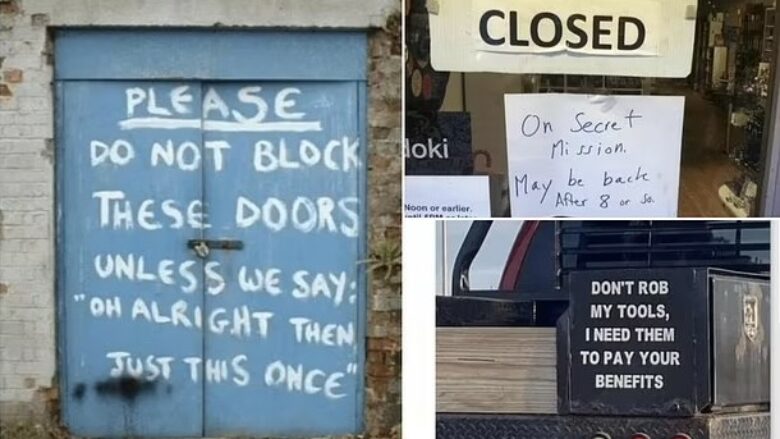 PLEASE
DO NOT BLOCK
THESE DOORS
UNLESS WE SAY:
"OH ALRIGHT THEN
JUST THIS ONCE"
CLOSED
On Secret
Mission.
May be back
After 8 or so.
loki
Noon or earlier.
DON'T ROB
MY TOOLS,
I NEED THEM
TO PAY YOUR
BENEFITS